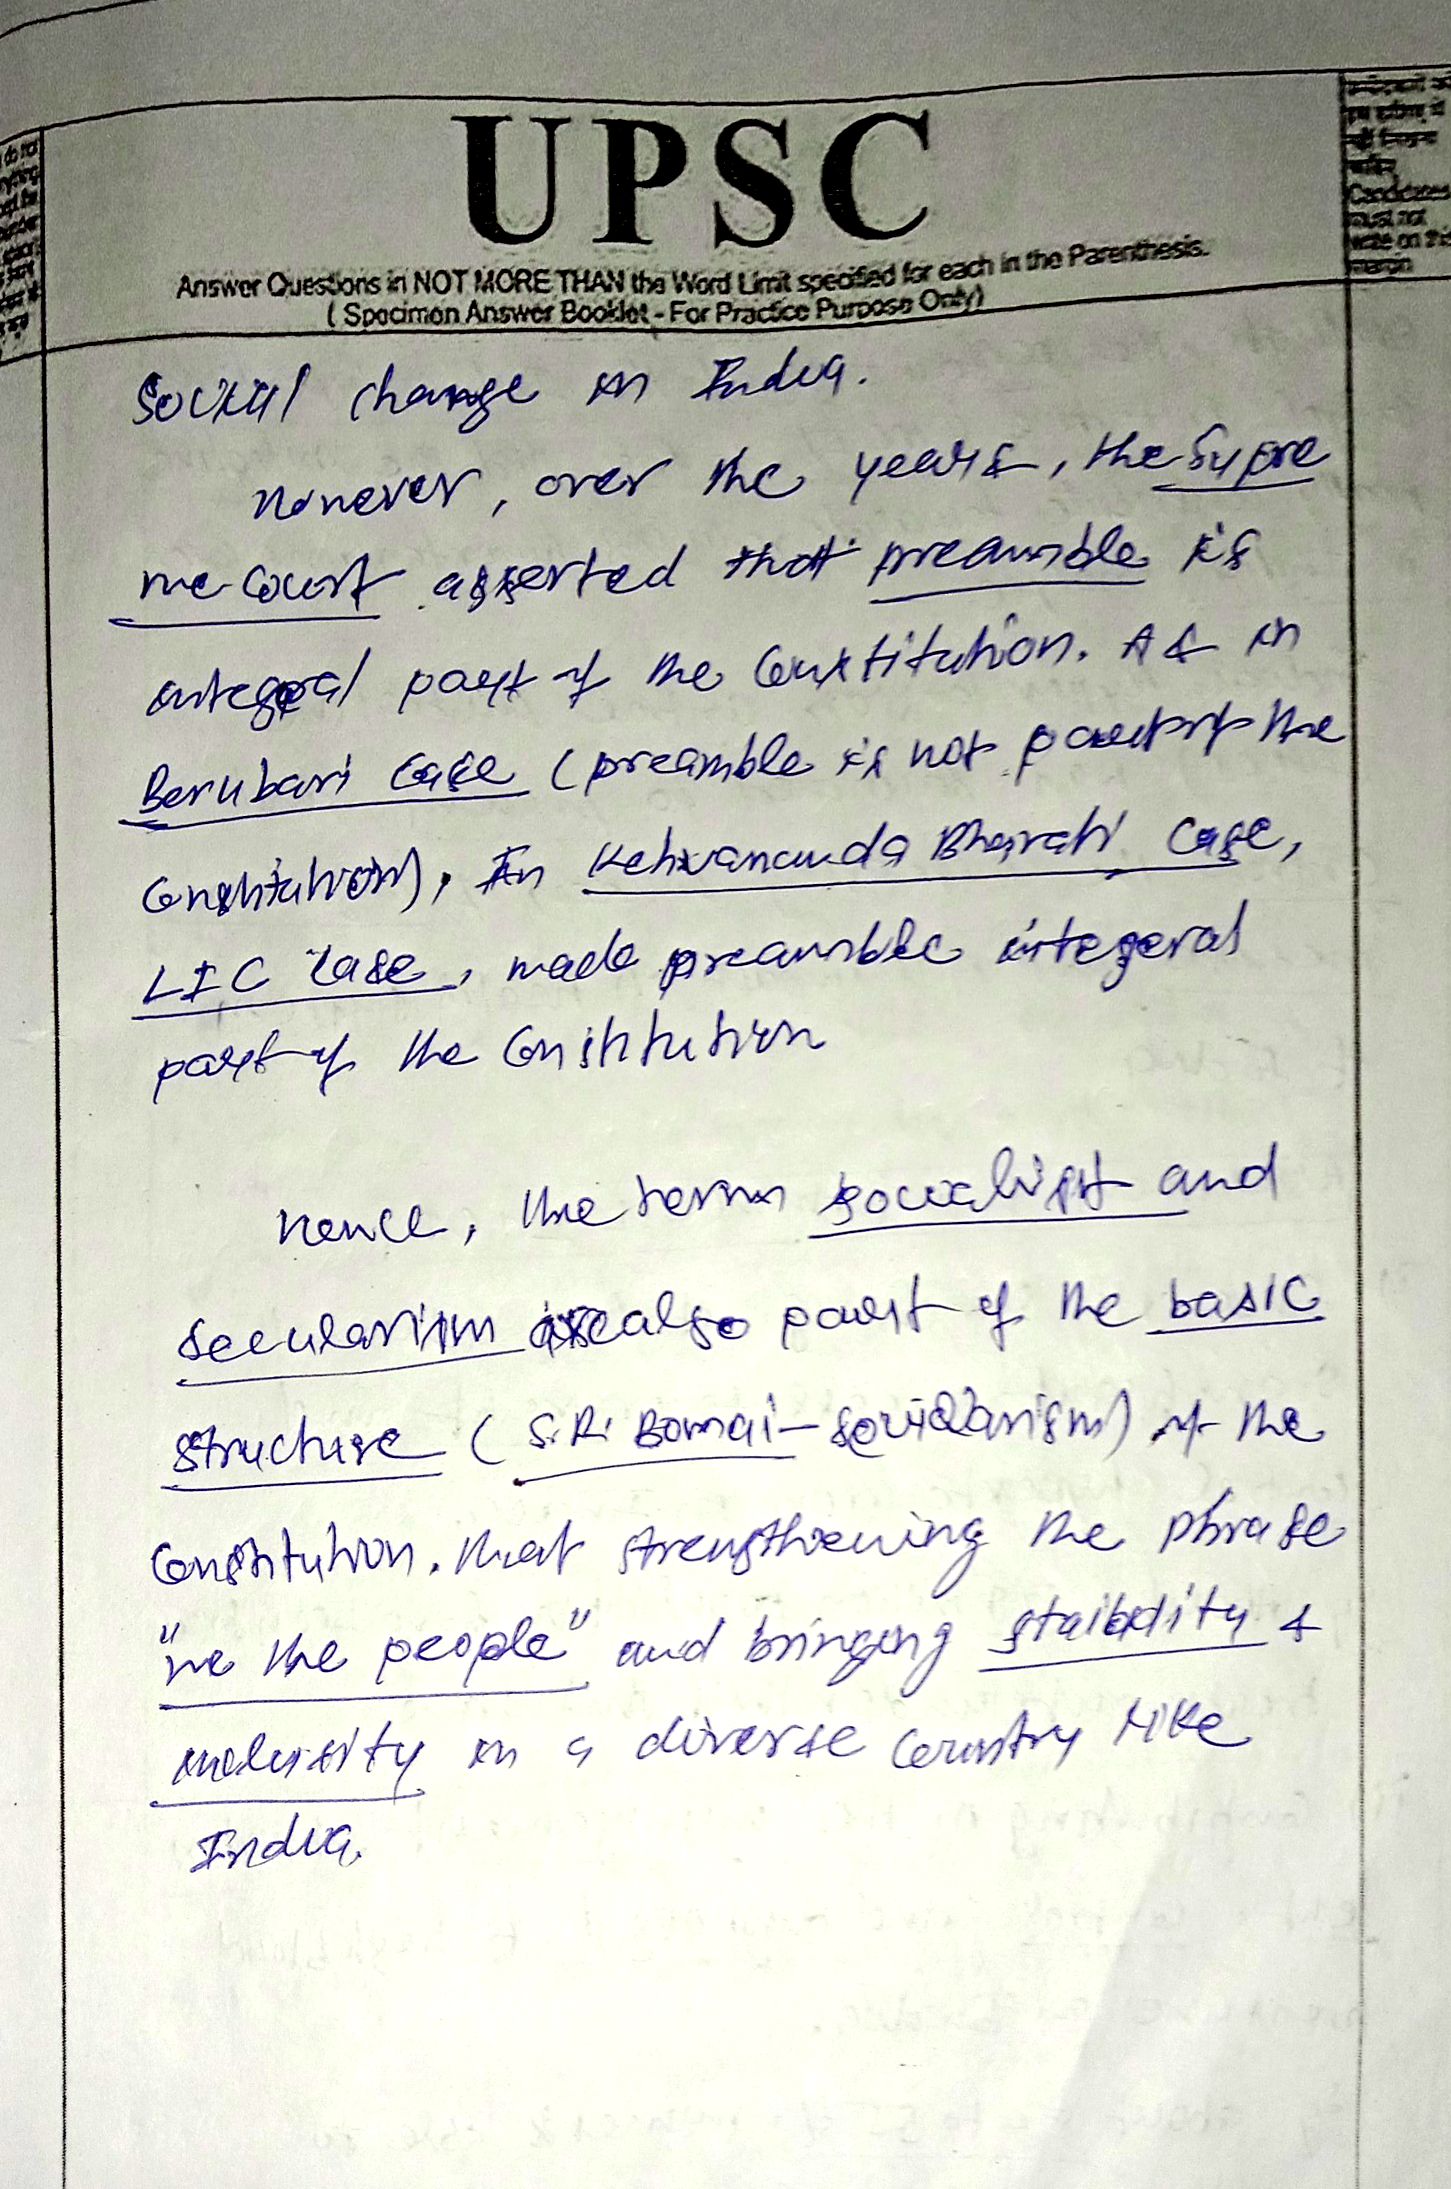 UPSC
Answer Questions in NOT MORE THAN the Word Limit specified for each in the Parenthesis.
( Specimen Answer Booklet - For Practice Purpose Only)
Candidates
must not
write on this
margin
Social change in India.
However, over the years, the Supre
me Court asserted that preamble is
integral part of the Constitution. As in
Berubari Case (preamble is not part of the
Constitution), In Kehvananda Bharati Case,
LIC Case, made preamble integeral
part of the Constitution
Hence, the term socialist and
secularism are also part of the basic
structure (S.R. Bomai - secularism) of the
Constitution. that strengthening the phrase
"we the people" and bringing stability &
inclusity in a diverse country like
India.